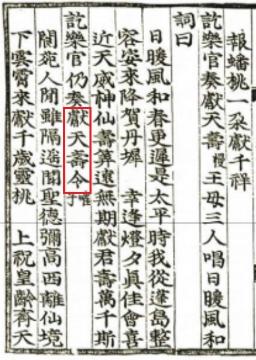 報蟠桃一朶獻千祥
訖樂官奏獻天壽慢王母三人唱日暖風和
詞曰
日暖風和春更遲是太平時我從蓬島整
容姿來降賀丹墀 幸逢燈夕眞佳會喜
近天威神仙壽筭遠無期獻君壽萬千斯
訖樂官仍奏獻天壽令嗺子
閬苑人間雖隔遙聞聖德彌高西離仙境
下雲霄來獻千歲靈桃 上祝皇齡齊天